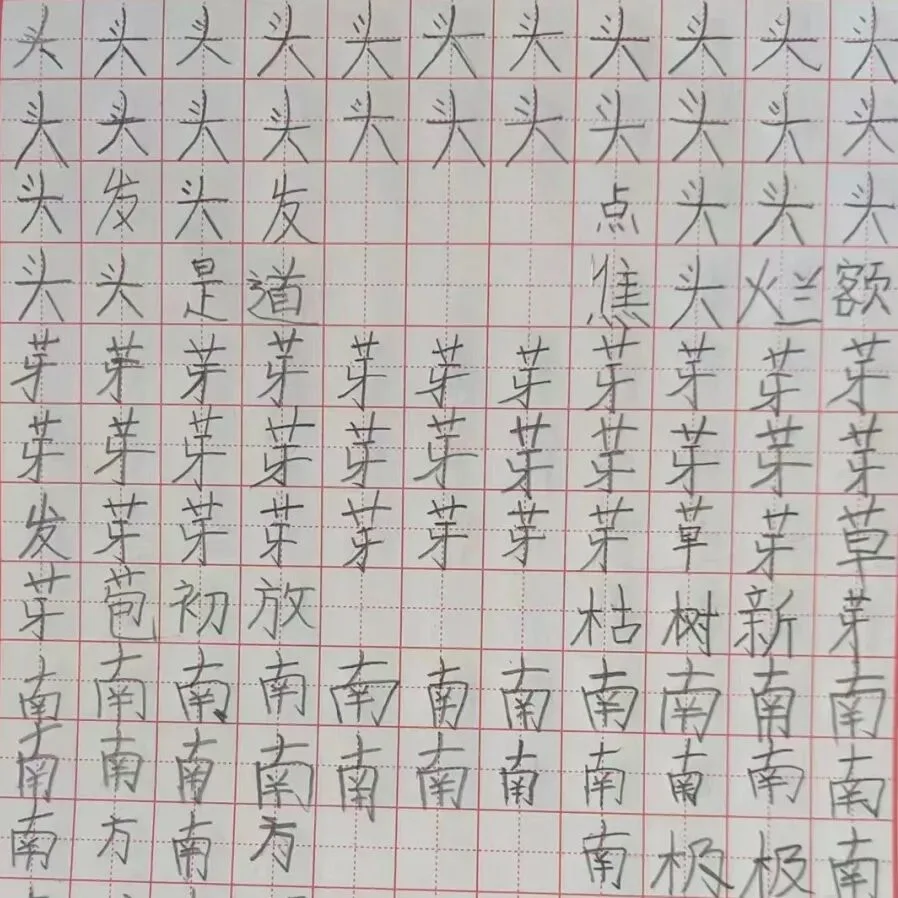 头头头头头头头头头头头
头头头头头头头头头头头
头发头发 点头头头
头头是道 焦头烂额
芽芽芽芽芽芽芽芽芽芽芽
芽芽芽芽芽芽芽芽芽芽芽
发芽芽芽芽芽芽芽草芽草
芽苞初放 枯树新芽
南南南南南南南南南南南
南南南南南南南南南南南
南方南方 南极极南